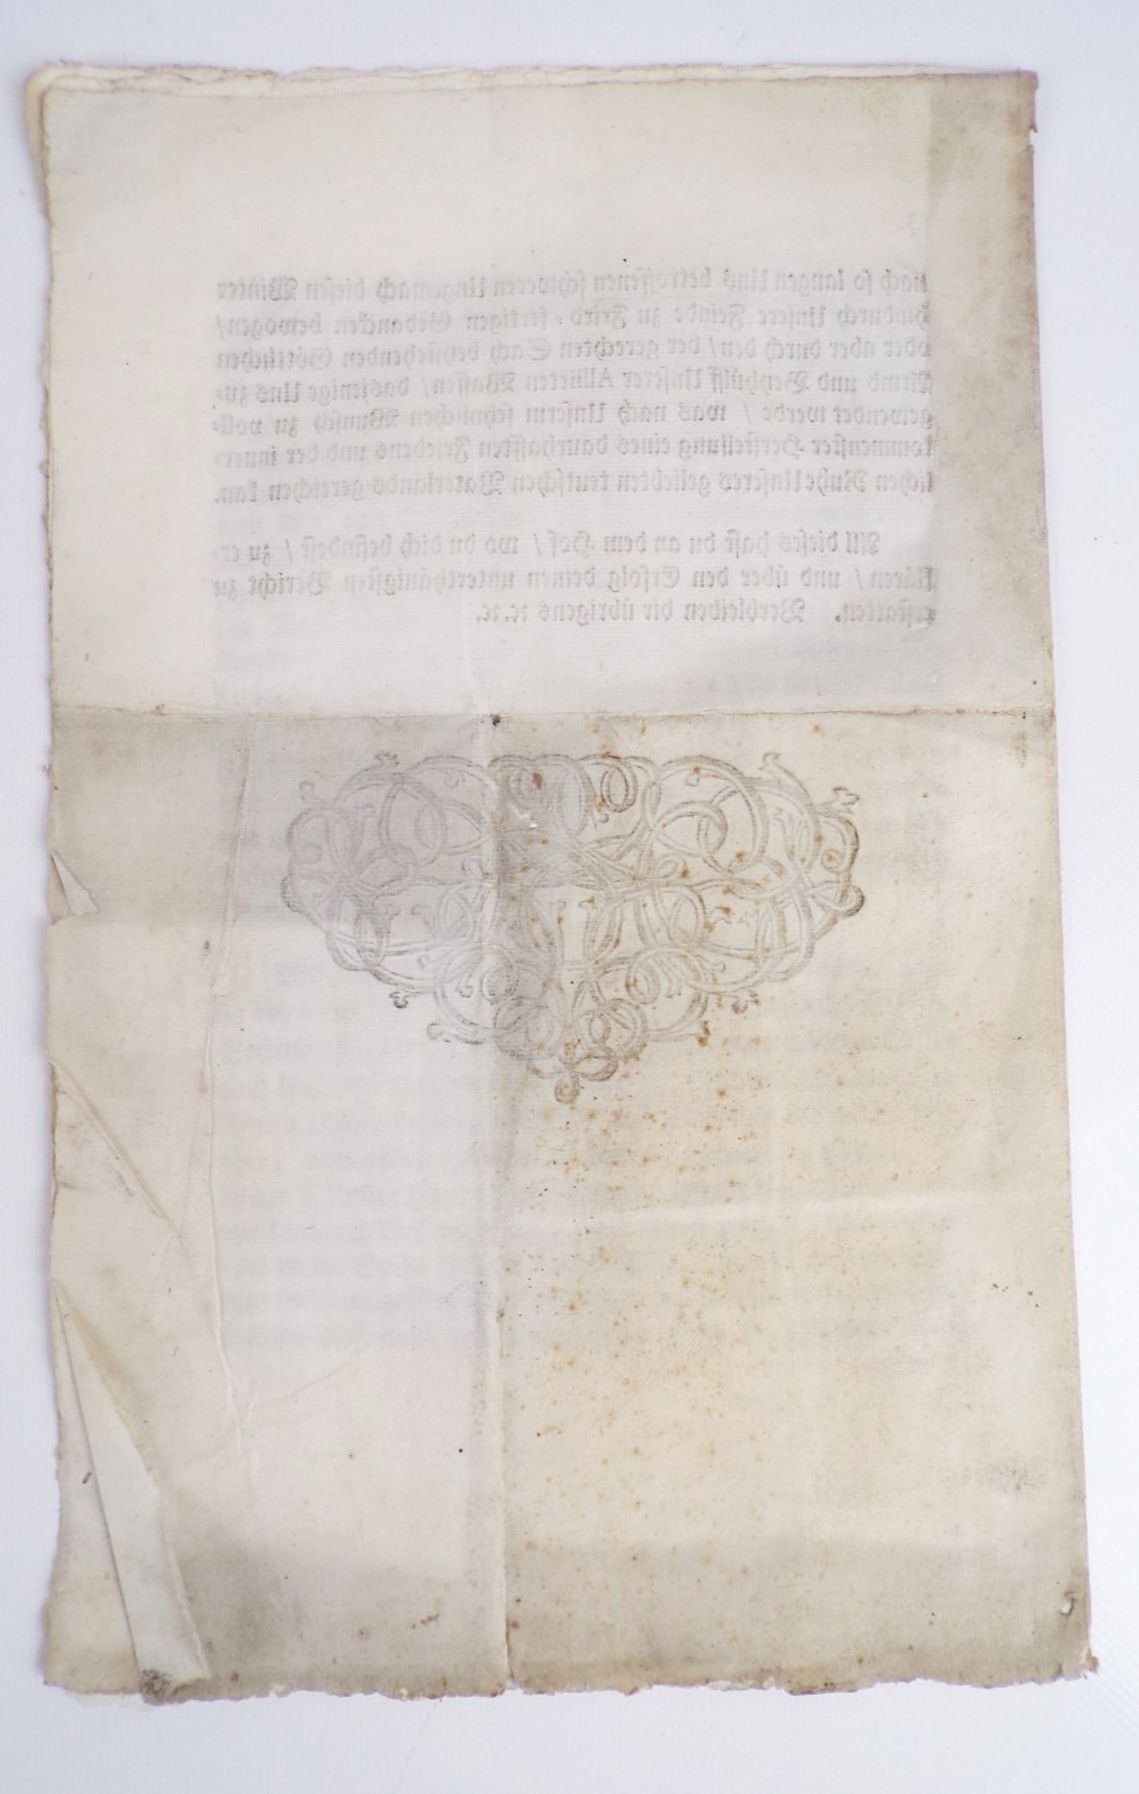 nach so langen Uns betroffenen schweren Ungemach diesen Winter
hindurch Unsere Feinde zu Fried-fertigen Gedancken bewogen/
oder aber durch den/ der gerechten Sach beystehenden Göttlichen
Armb und Beyhülff Unserer Allürten Waffen/ dasjenige Uns zu-
gewendet werde / was nach Unserm sehnlichen Wunsch zu voll-
kommenster Herstellung eines daurhafften Friedens und der inner-
lichen Ruhe Unseres geliebten teutschen Vaterlands gereichen kan.
All dieses hast du an dem Hof / wo du dich befindest / zu er-
klären / und über den Erfolg deinen unterthänigsten Bericht zu
erstatten. Verbleiben dir übrigens ꝛc. ꝛc.